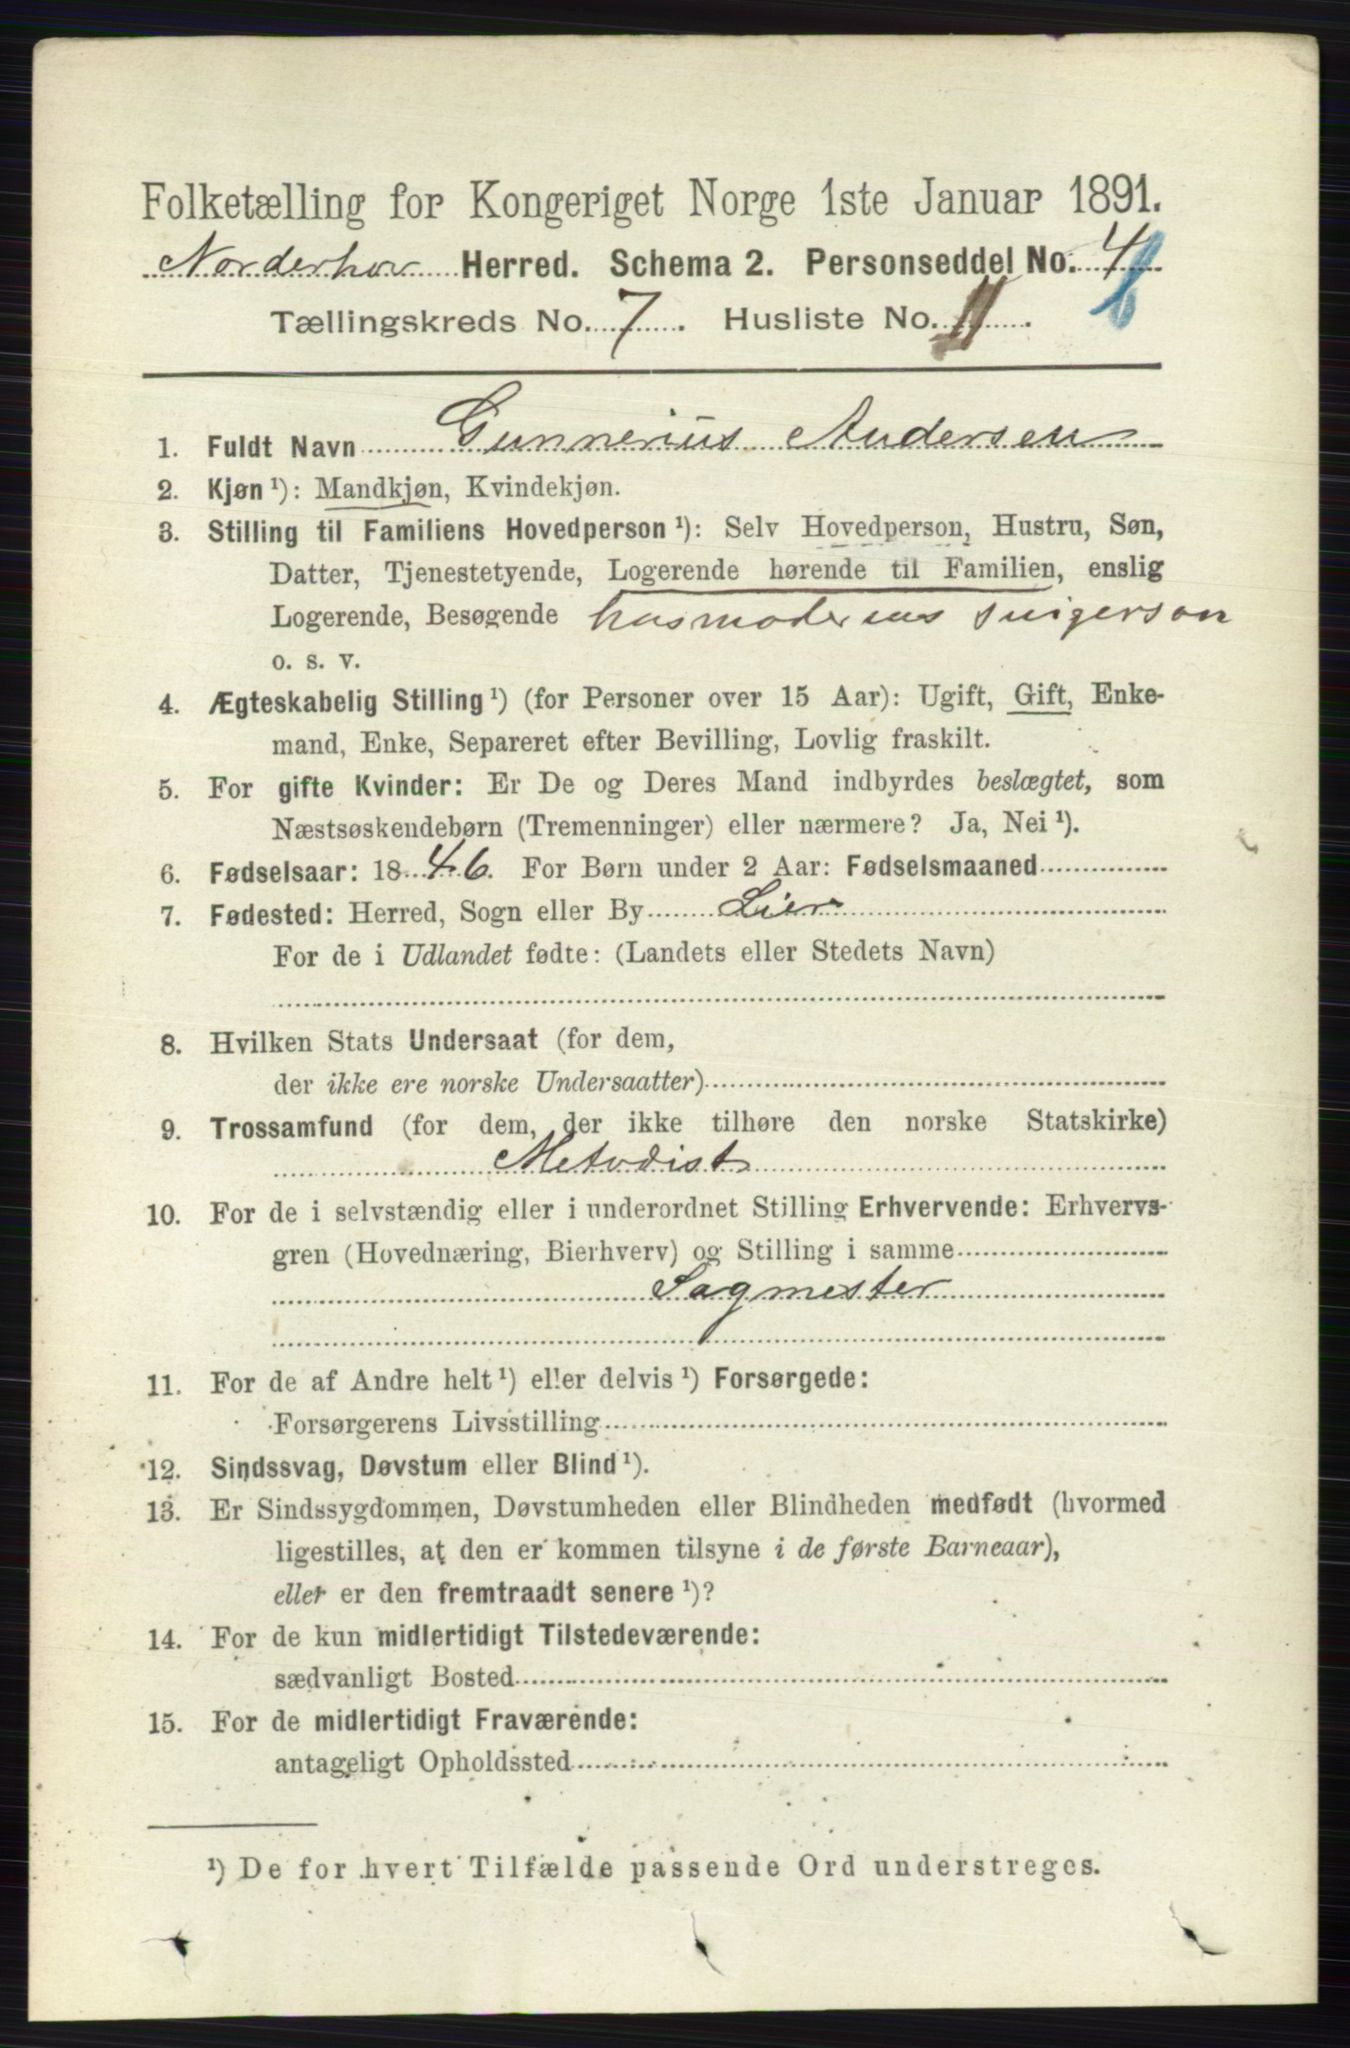 Folketælling for Kongeriget Norge 1ste Januar 1891.
Norderhov Herred. Schema 2. Personseddel No. 4 6
Tællingskreds No. 7. Husliste No. 11.
1. Fuldt Navn Gunnerius Andersen
2. Kjøn ¹): Mandkjøn, Kvindekjøn.
3. Stilling til Familiens Hovedperson ¹): Selv Hovedperson, Hustru, Søn,
Datter, Tjenestetyende, Logerende hørende til Familien, enslig
Logerende, Besøgende husmoderens svigersøn
o. s. v.
4. Ægteskabelig Stilling ¹) (for Personer over 15 Aar): Ugift, Gift, Enke-
mand, Enke, Separeret efter Bevilling, Lovlig fraskilt.
5. For gifte Kvinder: Er De og Deres Mand indbyrdes beslægtet, som
Næstsøskendebørn (Tremenninger) eller nærmere? Ja, Nei ¹).
6. Fødselsaar: 1846. For Børn under 2 Aar: Fødselsmaaned
7. Fødested: Herred, Sogn eller By Lier
For de i Udlandet fødte: (Landets eller Stedets Navn)
8. Hvilken Stats Undersaat (for dem,
der ikke ere norske Undersaatter)
9. Trossamfund (for dem, der ikke tilhøre den norske Statskirke)
Metodist
10. For de i selvstændig eller i underordnet Stilling Erhvervende: Erhvervs-
gren (Hovednæring, Bierhverv) og Stilling i samme
Sagmester
11. For de af Andre helt ¹) eller delvis ¹) Forsørgede:
Forsørgerens Livsstilling
12. Sindssvag, Døvstum eller Blind ¹).
13. Er Sindssygdommen, Døvstumheden eller Blindheden medfødt (hvormed
ligestilles, at den er kommen tilsyne i de første Barneaar),
eller er den fremtraadt senere ¹)?
14. For de kun midlertidigt Tilstedeværende:
sædvanligt Bosted
15. For de midlertidigt Fraværende:
antageligt Opholdssted
¹) De for hvert Tilfælde passende Ord understreges.